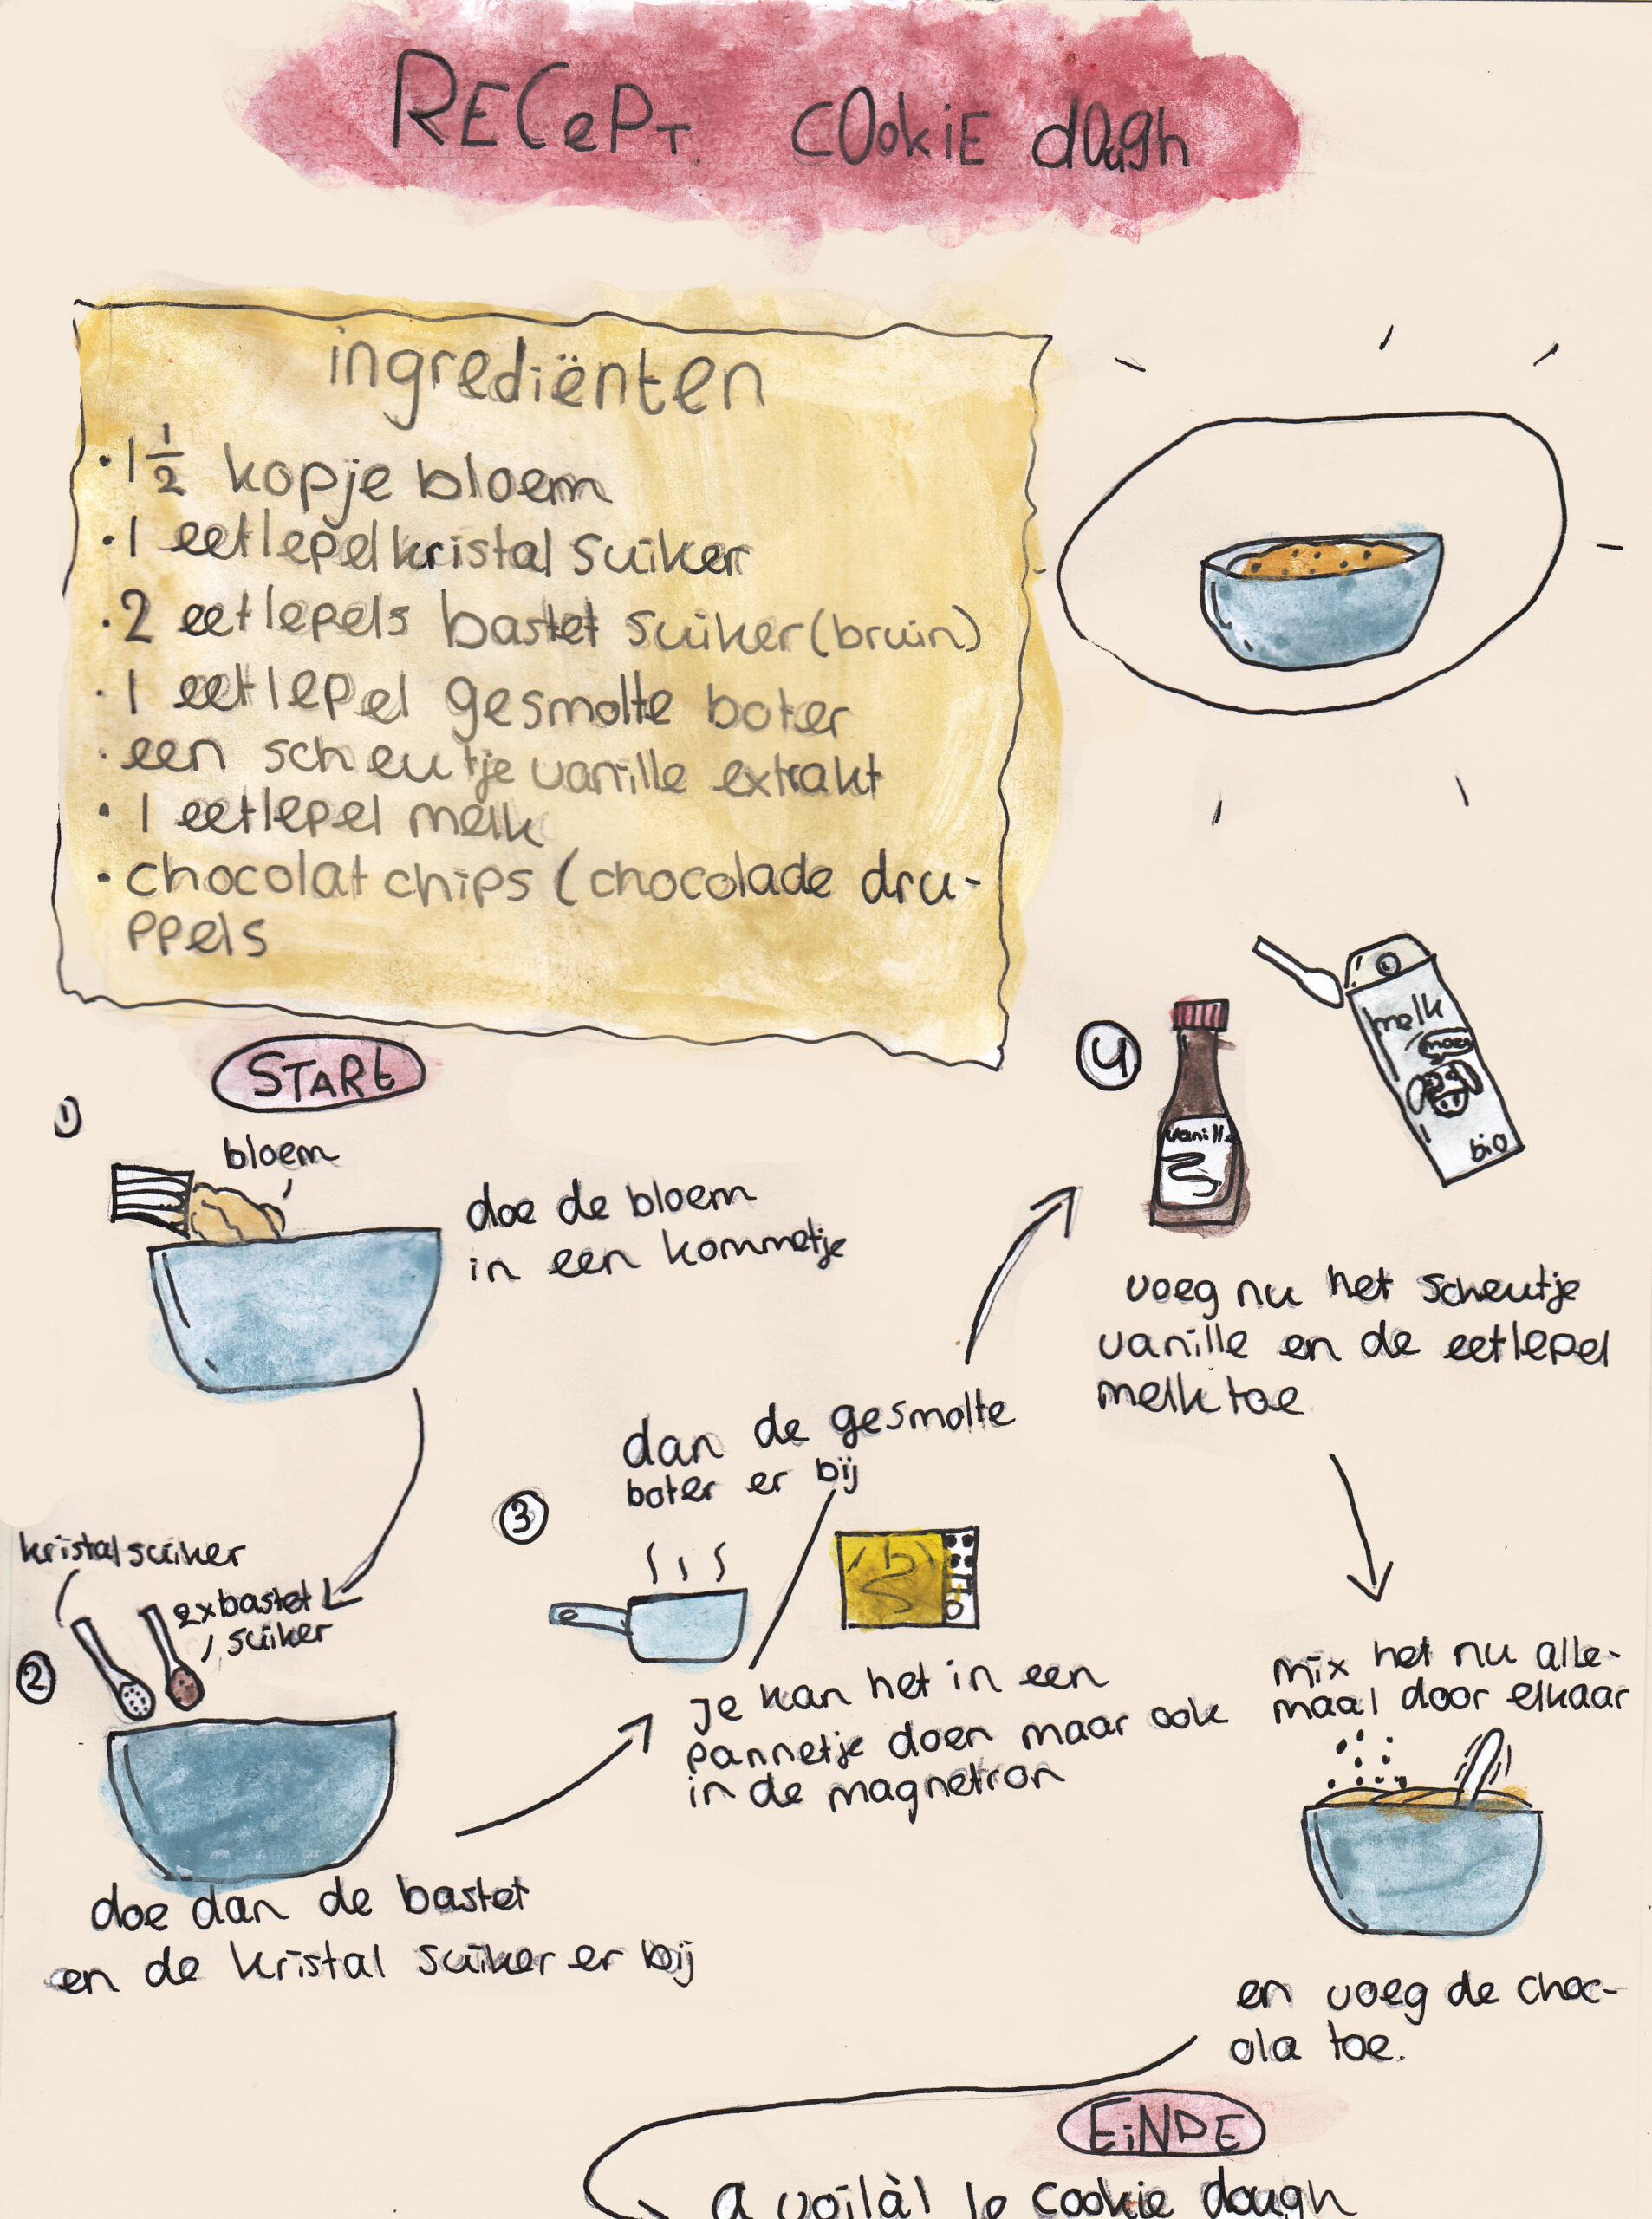 RECePT. COOkiE dOugh
ingrediënten
• 1 1/2 kopje bloem
• 1 eetlepel kristal suiker
• 2 eetlepels bastet suiker (bruin)
• 1 eetlepel gesmolte boter
• een scheutje vanille extrakt
• 1 eetlepel melk
• chocolat chips (chocolade dru-
ppels
START
1
bloem
doe de bloem
in een kommetje
kristalsuiker
2x bastet
suiker
2
doe dan de bastet
en de kristal suiker er bij
3
dan de gesmolte
boter er bij
je kan het in een
pannetje doen maar ook
in de magnetron
4
vanille
melk
moe
bio
voeg nu het scheutje
vanille en de eetlepel
melk toe
mix het nu alle-
maal door elkaar
en voeg de choc-
ola toe.
EiNDE
a voilà! Je cookie dough